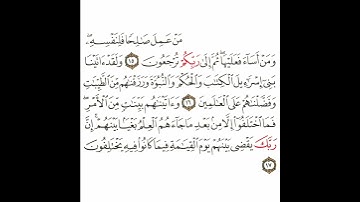 مَنْ عَمِلَ صَٰلِحًا فَلِنَفْسِهِۦ ۖ
وَمَنْ أَسَآءَ فَعَلَيْهَا ۖ ثُمَّ إِلَىٰ رَبِّكُمْ تُرْجَعُونَ ١٥ وَلَقَدْ ءَاتَيْنَا
بَنِىٓ إِسْرَٰٓءِيلَ ٱلْكِتَٰبَ وَٱلْحُكْمَ وَٱلنُّبُوَّةَ وَرَزَقْنَٰهُم مِّنَ ٱلطَّيِّبَٰتِ
وَفَضَّلْنَٰهُمْ عَلَى ٱلْعَٰلَمِينَ ١٦ وَءَاتَيْنَٰهُم بَيِّنَٰتٍ مِّنَ ٱلْأَمْرِ ۖ
فَمَا ٱخْتَلَفُوٓا۟ إِلَّا مِنۢ بَعْدِ مَا جَآءَهُمُ ٱلْعِلْمُ بَغْيًۢا بَيْنَهُمْ ۚ إِنَّ
رَبَّكَ يَقْضِى بَيْنَهُمْ يَوْمَ ٱلْقِيَٰمَةِ فِيمَا كَانُوا۟ فِيهِ يَخْتَلِفُونَ
١٧